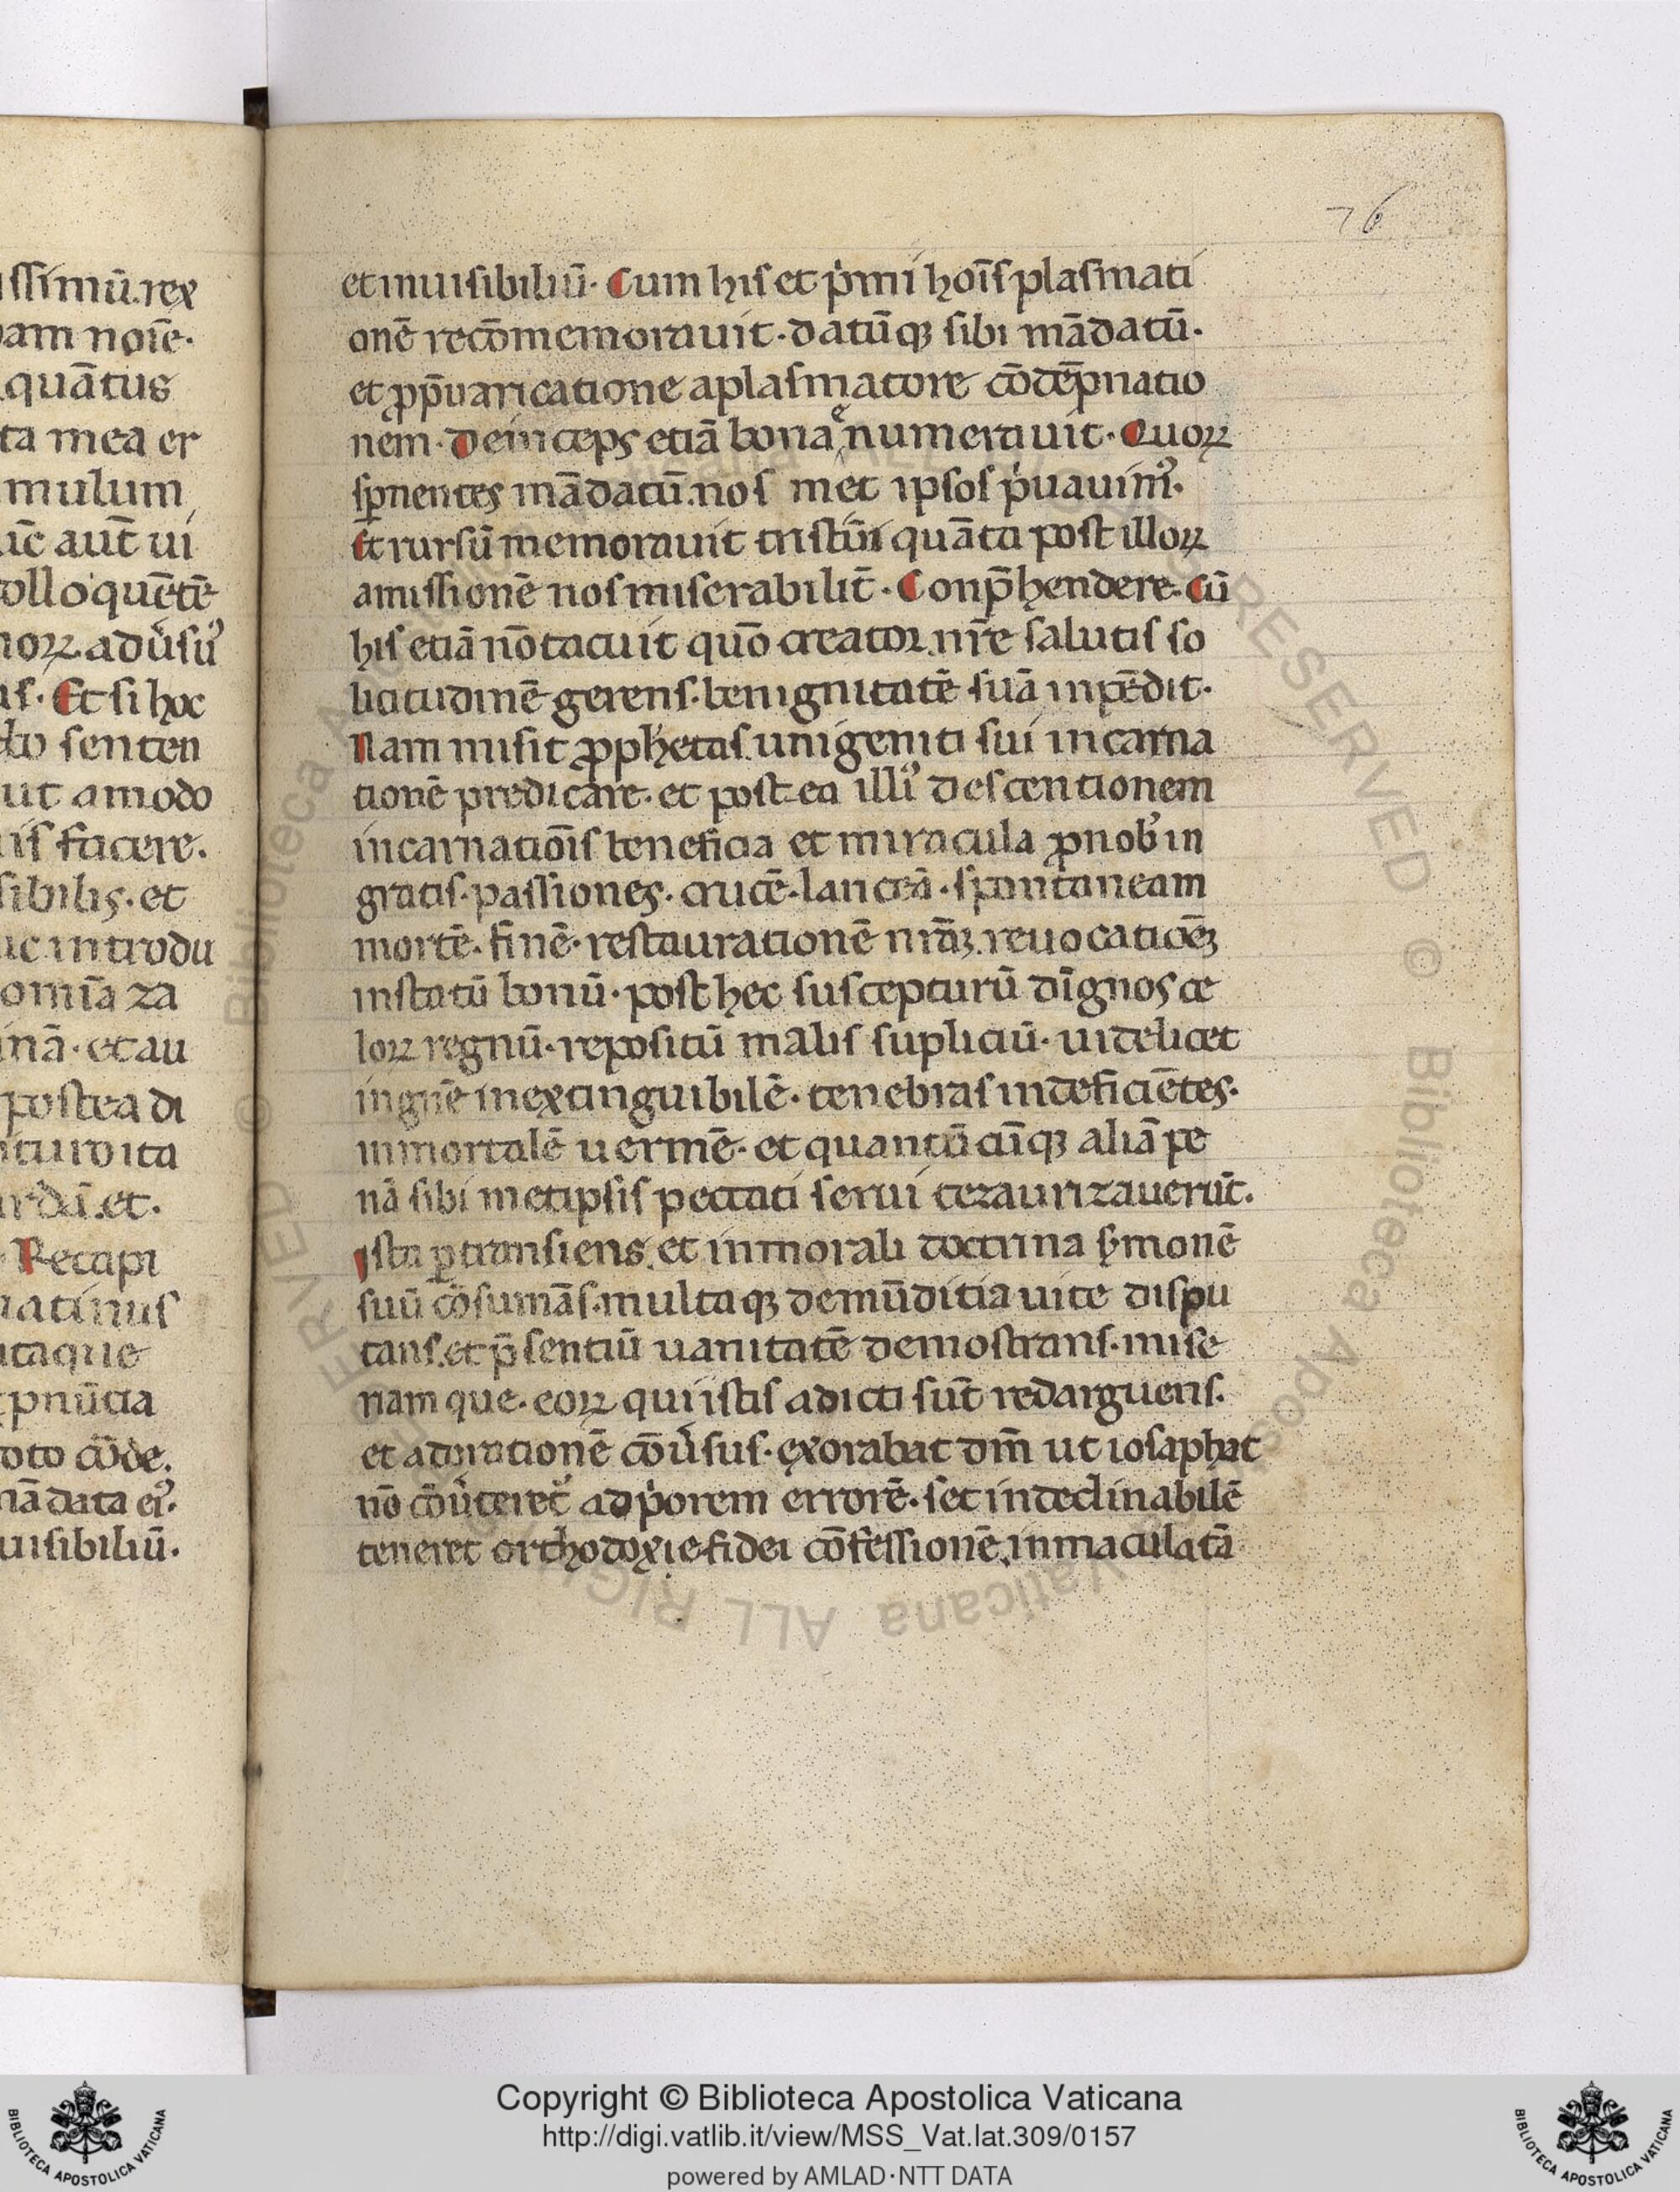 76
ssimū. rex
am noīe·
quātus
ta mea er
mulum
aūt ui
olloquētē
noꝝ adūsuꝰ
us· Et si hoc
senten
ut amodo
iis facere.
sibilis· et
uc introdu
omīa za
inā· et au
postea di
turo ita
et·
Recapi
natinus
itaque
pnūtia
oto cōde.
nādata eiꝰ·
uisibiliū·
et inuisibiliū· Cum his et pͥmi hoīs plasmati
onē recōmemorauit· datūqꝫ sibi mādatū·
et ꝓp̄uaricatione a plasmatore cōdēpnatio
nem· Deinceps etiā bona enumerauit· Quoꝝ
sp̱nentes mādatū. nos met ipsos pͥuauimꝰ·
Et rursū memorauit quāta post illoꝝ
amissionē nos miserabilit̄· Conp̄hendere· Cū
his etiā nō tacuit quō creator. nr̄e salutis so
licitudinē gerens· benignitatē suā inpēdit·
Nam misit ꝓphetas. unigeniti sui incarna
tionē predicare· et post ea illiꝰ descentionem
incarnatiōis beneficia et miracula ꝓ nobꝰ in
gratis· passiones· crucē· lanceā· spontaneam
mortē· finē· restaurationē nr̄aꝫ. reuocatiōeꝫ
in statū bonū· post hec suscepturū dīgnos ce
loꝝ regnū· repositū malis supliciū· uidelicet
ingnē inextinguibilē· tenebras indeficiētes·
inmortalē uermē· et quantū cūqꝫ aliā pe
nā sibi metipsis peccati serui tezaurizauerūt·
Ista ꝑtransiens. et in morali doctrina sͬmonē
suū cōsumās· multaqꝫ de mūditia uite dispu
tans. et p̄sentiū uanitatē demostrans· mise
riamque· eoꝝ qui istis adicti sūt redarguens·
et ad orationē cōūsus· exorabat dm̄ ut iosaphat
nō cōūteret adpͥorem errorē· set indeclinabilē
teneret orthodoxie fidei cōfessionē, inmaculatā
Biblioteca Apostolica Vaticana ALL RIGHTS RESERVED ©
Copyright © Biblioteca Apostolica Vaticana
http://digi.vatlib.it/view/MSS_Vat.lat.309/0157
powered by AMLAD·NTT DATA
BIBLIOTECA APOSTOLICA VATICANA
BIBLIOTECA APOSTOLICA VATICANA